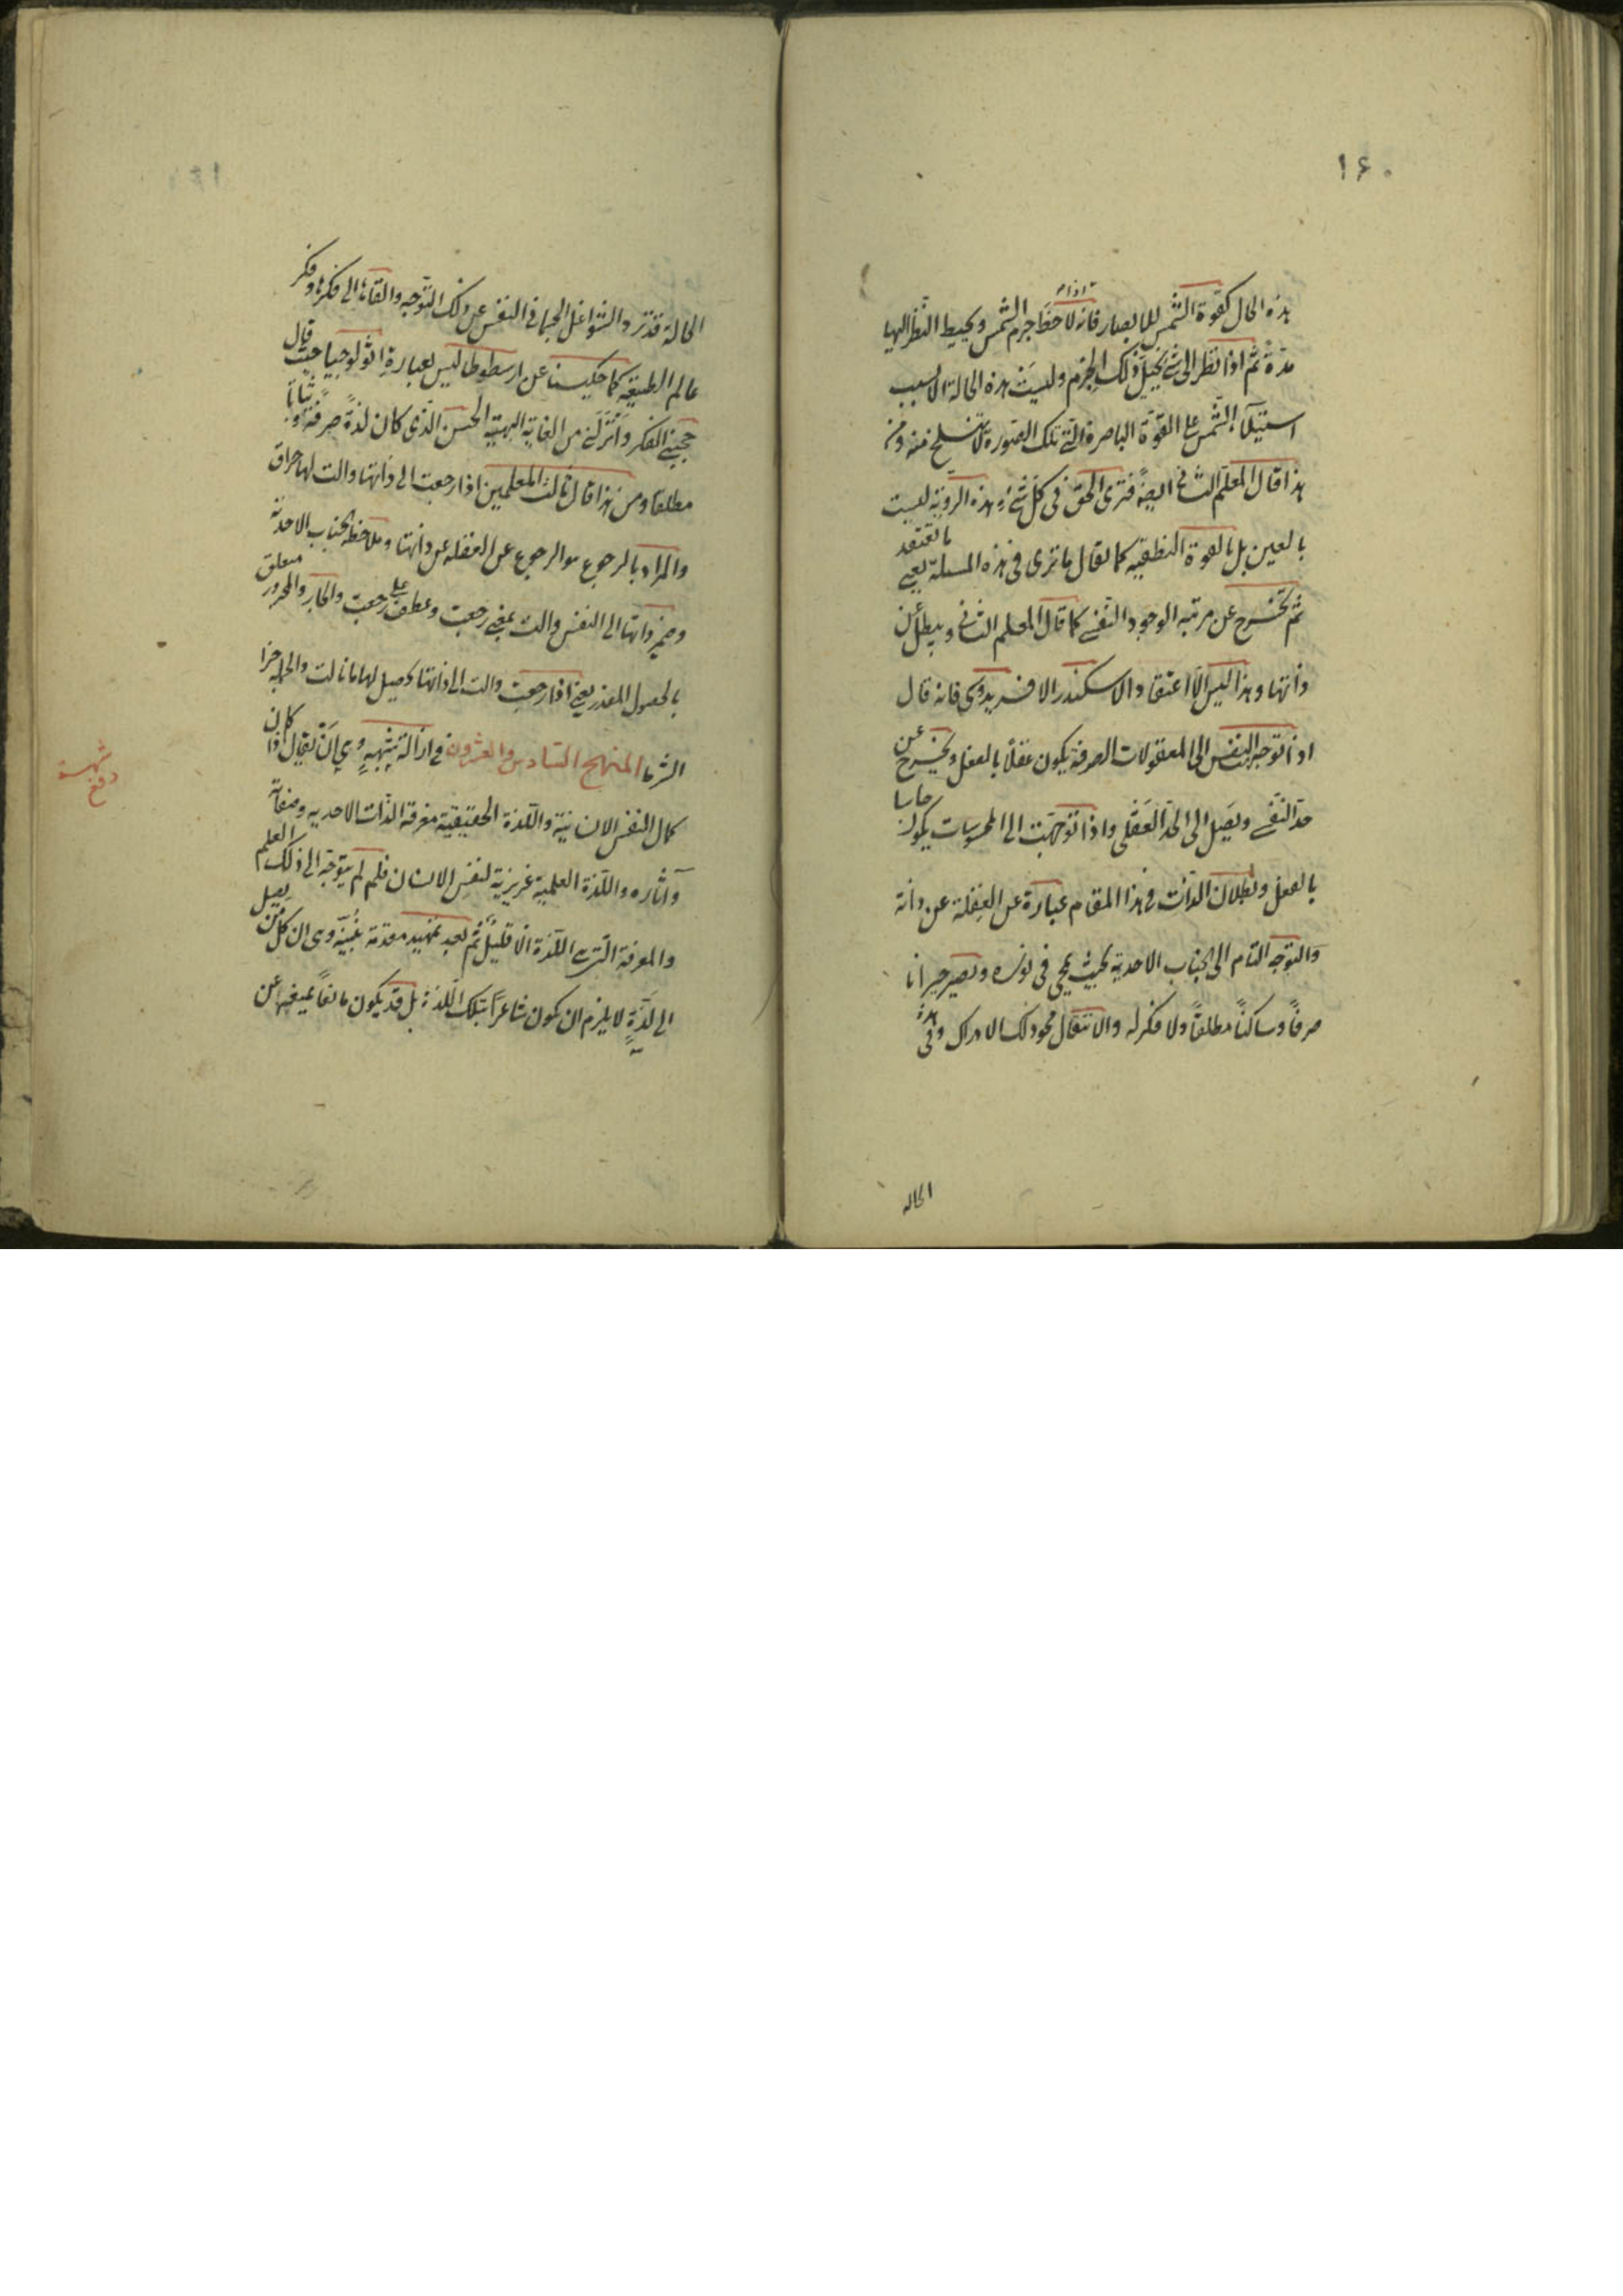 ١۶٠
هذه الحال كقوة الشمس للابصار فانه اذا لاحظ جرم الشمس ويحيط النظر اليها
مدة ثم اذا نظر الى شئ يخيل ذلك الجرم وليست هذه الحالة الا بسبب
استيلاء الشمس على القوة الباصرة التى تلك الصورة لا تنسلخ منه ومن
هذا قال المعلم الثانى ايضا فترى الحق فى كل شئ وهذه الروية ليست
بالعين بل بالقوة النطقيه كما يقال ما ترى فى هذه المسئلة يعنى ما تعتقد
ثم تخرج عن مرتبه الوجود النفسى كما قال المعلم الثانى ويبطل عن
ذاتها وهذا ليس الا اعتقاد الاسكندر الافريدوسى فانه قال
اذا توجه النفس الى المعقولات الصرفة يكون عقلاً بالفعل ويخرج عن
حد النفسى ويصل الى الحد العقلى واذا توجهت الى المحسوسات يكون حاسا
بالفعل وبطلان الذات فى هذا المقام عبارة عن الغفلة عن ذاته
والتوجه التام الى الجناب الاحدية بحيث يمحى فى نوره ويصير حيرانا
صرفاً وساكناً مطلقاً ولا فكر له والانتقال محو ذلك الادراك وفى هذه
الحاله
الحالة قد ترد الشواغل الجسمانى النفس عن ذلك التوجه والقائها الى فكرها وفكر
عالم الطبيعه كما حكينا عن ارسطوطاليس بعبارة اثولوجيا حيث قال
حجبنى الفكر وانزلنى من الغاية البهيه الحسن الذى كان لذة صرفة وثباتاً
مطلقا ومن هذا قال ثالث المعلمين اذا رجعت الى ذاتها والت لها حراق
والمراد بالرجوع هو الرجوع عن الغفله عن ذاتها وملاحظه الجناب الاحدية
وضمير ذاتها الى النفس والت بمعنى رجعت وعطف على رجعت والجار والمجرور متعلق
بالحصول المقدر يعنى اذا رجعت والت الى ذاتها حصل لها ما نالت والجملة جزا
الشرط المنهج السادس والعشرون فى ازالة شبهه وهى ان يقال اذا كان
كمال النفس الانسانية واللذة الحقيقية معرفة الذات الاحديه وصفاته
وآثاره واللذة العلمية غريزية لنفس الانسان فلم لم يتوجه الى ذلك العلم
والمعرفة التى هى اللذة الا قليل ثم بعد تمهيد مقدمة غيبية وهى ان كل من يصل
الى لذة لا يلزم ان يكون شاعراً بتلك اللذة بل قد يكون مانعا يمنعه عن
دفع شبهة